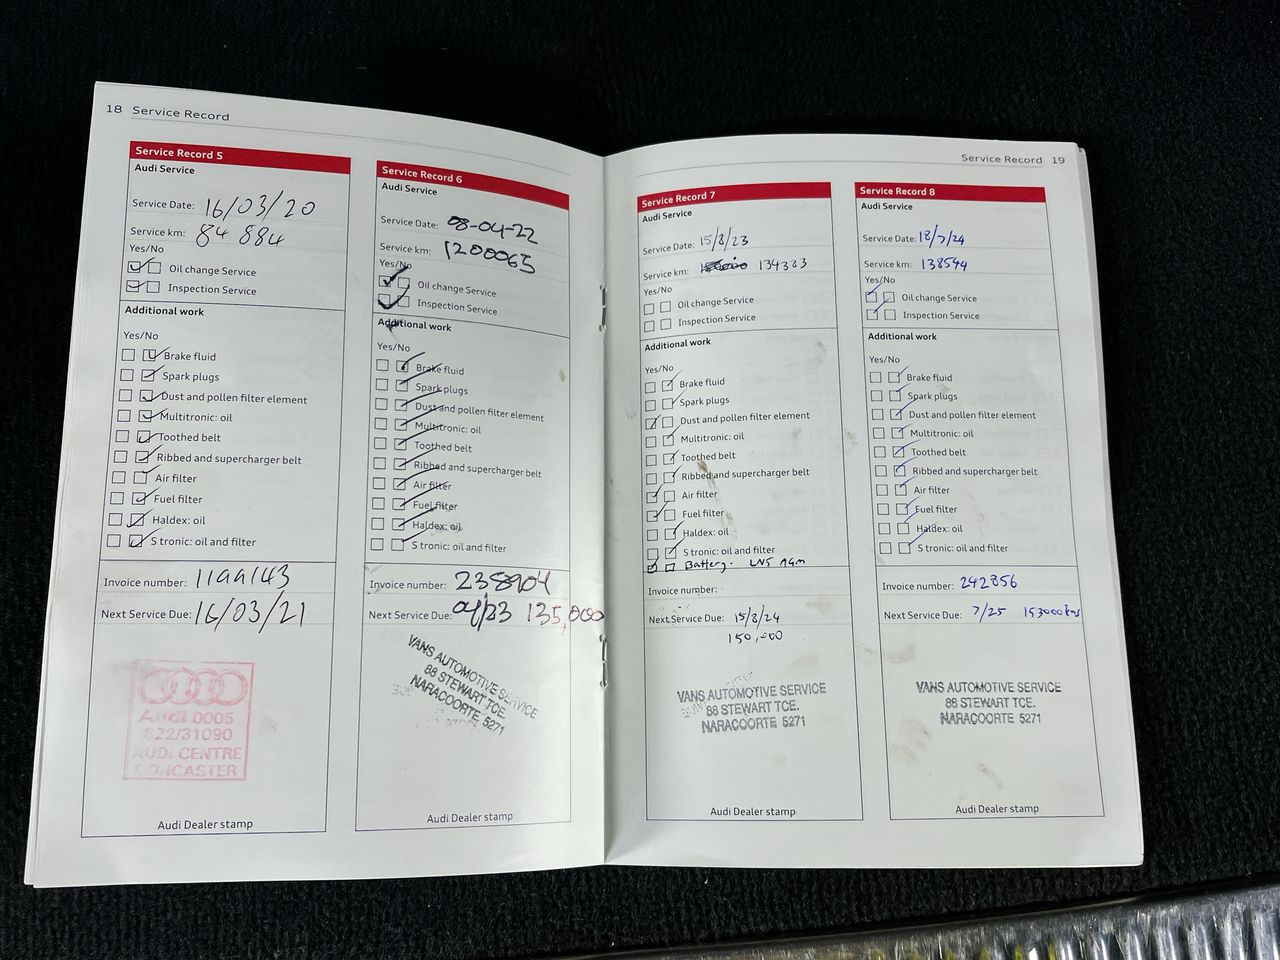 18 Service Record
Service Record 5
Audi Service
Service Date: 16/03/20
Service km: 84 884
Yes/No
Oil change Service
Inspection Service
Additional work
Yes/No
Brake fluid
Spark plugs
Dust and pollen filter element
Multitronic: oil
Toothed belt
Ribbed and supercharger belt
Air filter
Fuel filter
Haldex: oil
S tronic: oil and filter
Invoice number:
Next Service Due: 16/03/21
Audi 0005
822/31090
AUDI CENTRE
DONCASTER
Audi Dealer stamp
Service Record 6
Audi Service
Service Date: 08-04-22
Service km: 1200065
Yes/No
Oil change Service
Inspection Service
Additional work
Yes/No
Brake fluid
Spark plugs
Dust and pollen filter element
Multitronic: oil
Toothed belt
Ribbed and supercharger belt
Air filter
Fuel filter
Haldex: oil
S tronic: oil and filter
Invoice number: 238904
Next Service Due: 04/23 135,000
VANS AUTOMOTIVE SERVICE
88 STEWART TCE.
NARACOORTE 5271
Audi Dealer stamp
Service Record 19
Service Record 7
Audi Service
Service Date: 15/8/23
Service km: 134383
Yes/No
Oil change Service
Inspection Service
Additional work
Yes/No
Brake fluid
Spark plugs
Dust and pollen filter element
Multitronic: oil
Toothed belt
Ribbed and supercharger belt
Air filter
Fuel filter
Haldex: oil
S tronic: oil and filter
Battery. LN5 AGM
Invoice number:
Next Service Due: 15/8/24
150,000
VANS AUTOMOTIVE SERVICE
88 STEWART TCE.
NARACOORTE 5271
Audi Dealer stamp
Service Record 8
Audi Service
Service Date: 18/7/24
Service km: 138594
Yes/No
Oil change Service
Inspection Service
Additional work
Yes/No
Brake fluid
Spark plugs
Dust and pollen filter element
Multitronic: oil
Toothed belt
Ribbed and supercharger belt
Air filter
Fuel filter
Haldex: oil
S tronic: oil and filter
Invoice number: 242856
Next Service Due: 7/25 153000kms
VANS AUTOMOTIVE SERVICE
88 STEWART TCE.
NARACOORTE 5271
Audi Dealer stamp